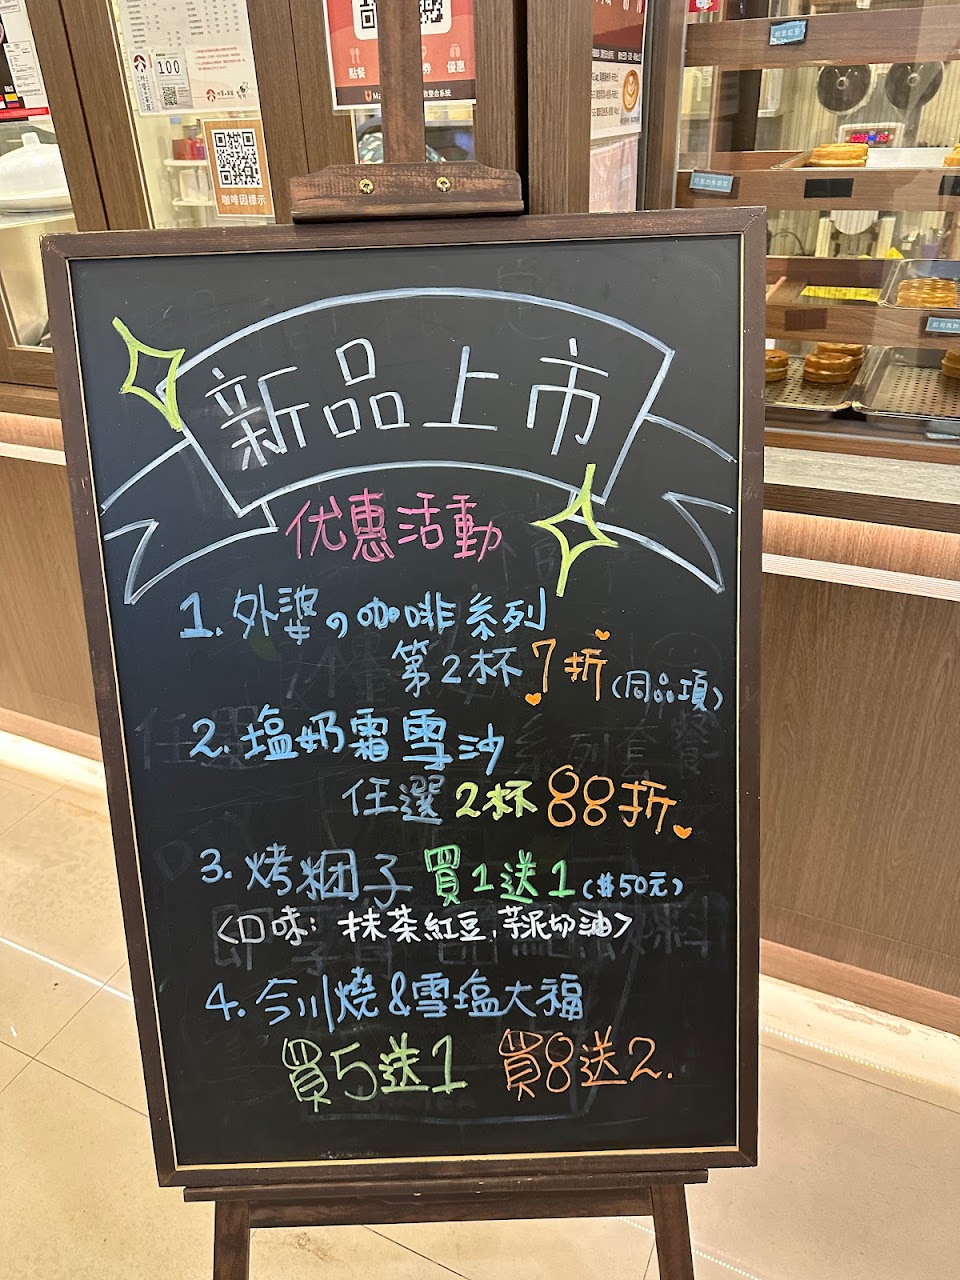 100
點餐
優惠
咖啡因標示
新品上市
优惠活動
1. 外婆の咖啡系列
第2杯7折(同品項)
2. 塩奶霜雪沙
任選2杯88折
3. 烤粿子 買1送1(共50元)
<口味: 抹茶紅豆, 芋泥奶油>
4. 今川燒&雪塩大福
買5送1 買8送2.